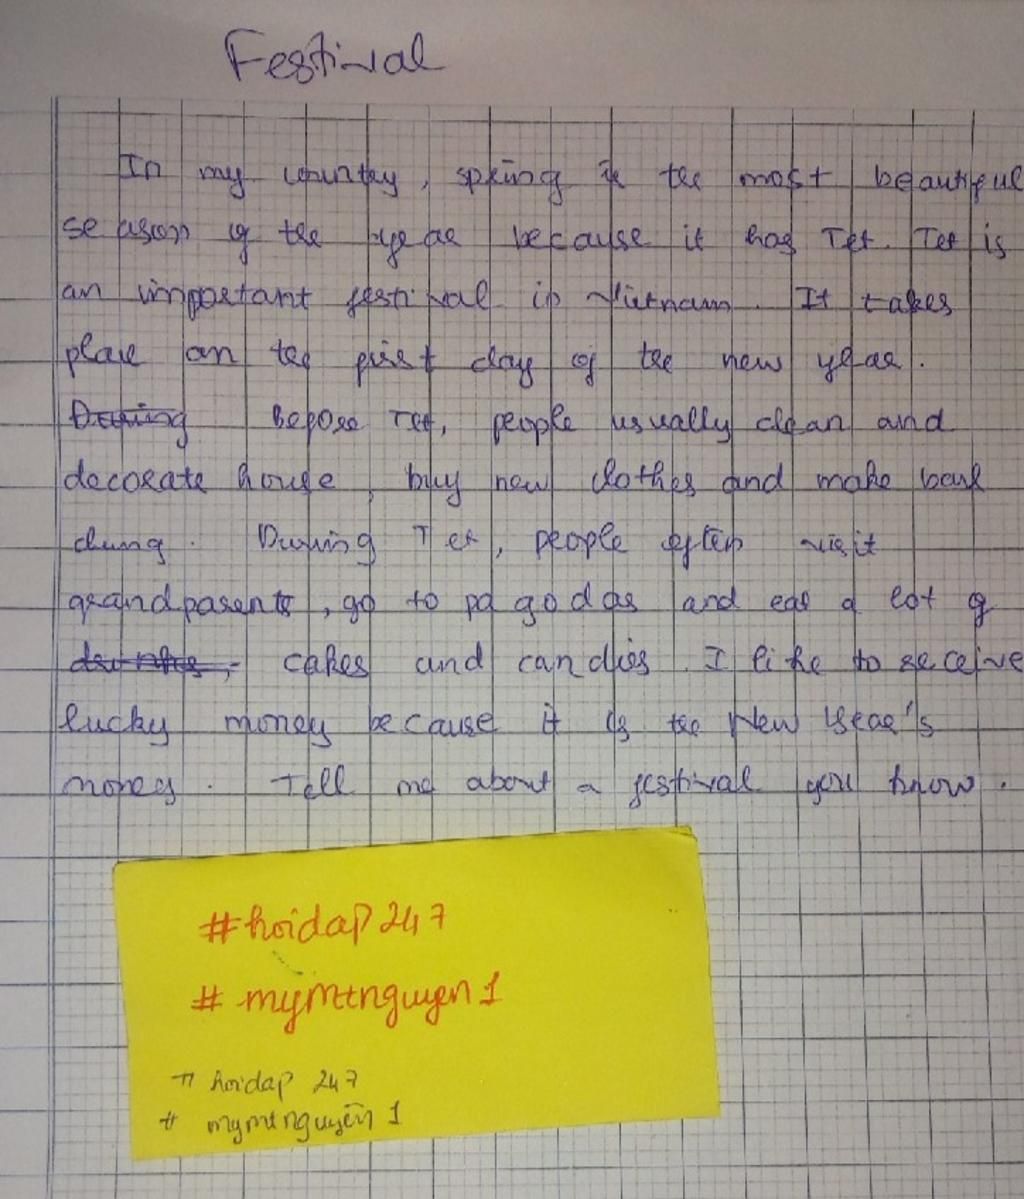 Festival
In my country, spring is the most beautiful
season of the year because it has Tet. Tet is
an important festival in Vietnam. It takes
place on the first day of the new year.
During Before Tet, people usually clean and
decorate house, buy new clothes and make banh
chung. During Tet, people often visit
grandparents, go to pagodas and eat a lot of
drinks, cakes and candies. I like to receive
lucky money because it is the New Year's
money. Tell me about a festival you know.
#hoidap247
#mymtnguyen1
# hoidap 247
# mymtnguyen1